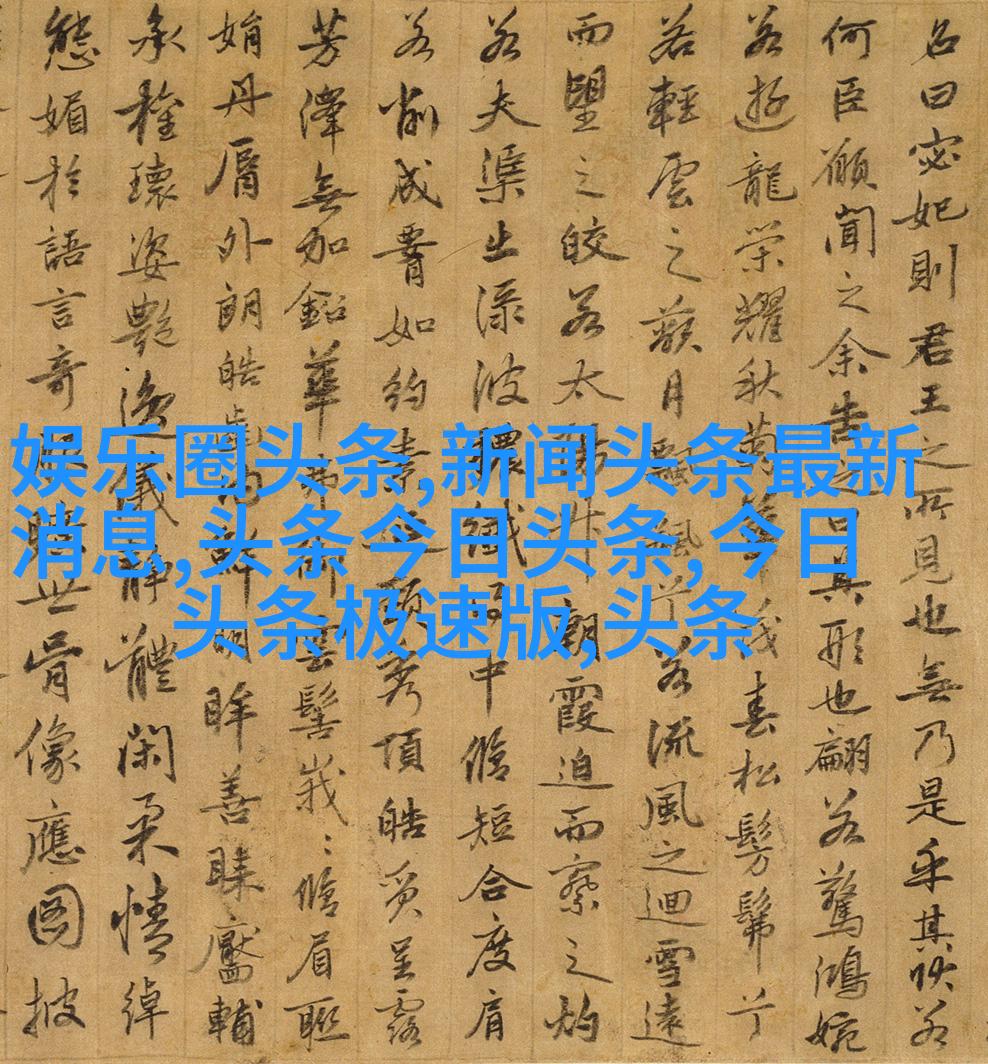 娱乐圈头条,新闻头条最新
消息,头条今日头条,今日
头条极速版,头条
名曰宓妃則君王之所見也無乃是乎其狀若
何臣願聞之余告之曰其形也翩若驚鴻婉
若遊龍榮耀秋菊華茂春松髣髴兮
若輕雲之蔽月飄颻兮若流風之迴雪遠
而望之皎若太陽升朝霞迫而察之灼
若夫渠出淥波穠纖得中脩短合度肩
若削成腰如約素延頸秀項皓質呈露
芳澤無加鉛華弗御雲髻峩〻脩眉聯
娟丹脣外朗皓齒內鮮明眸善睞靨輔
承權瓌姿艷逸儀靜體閑柔情綽
態媚於語言奇服曠世骨像應圖披